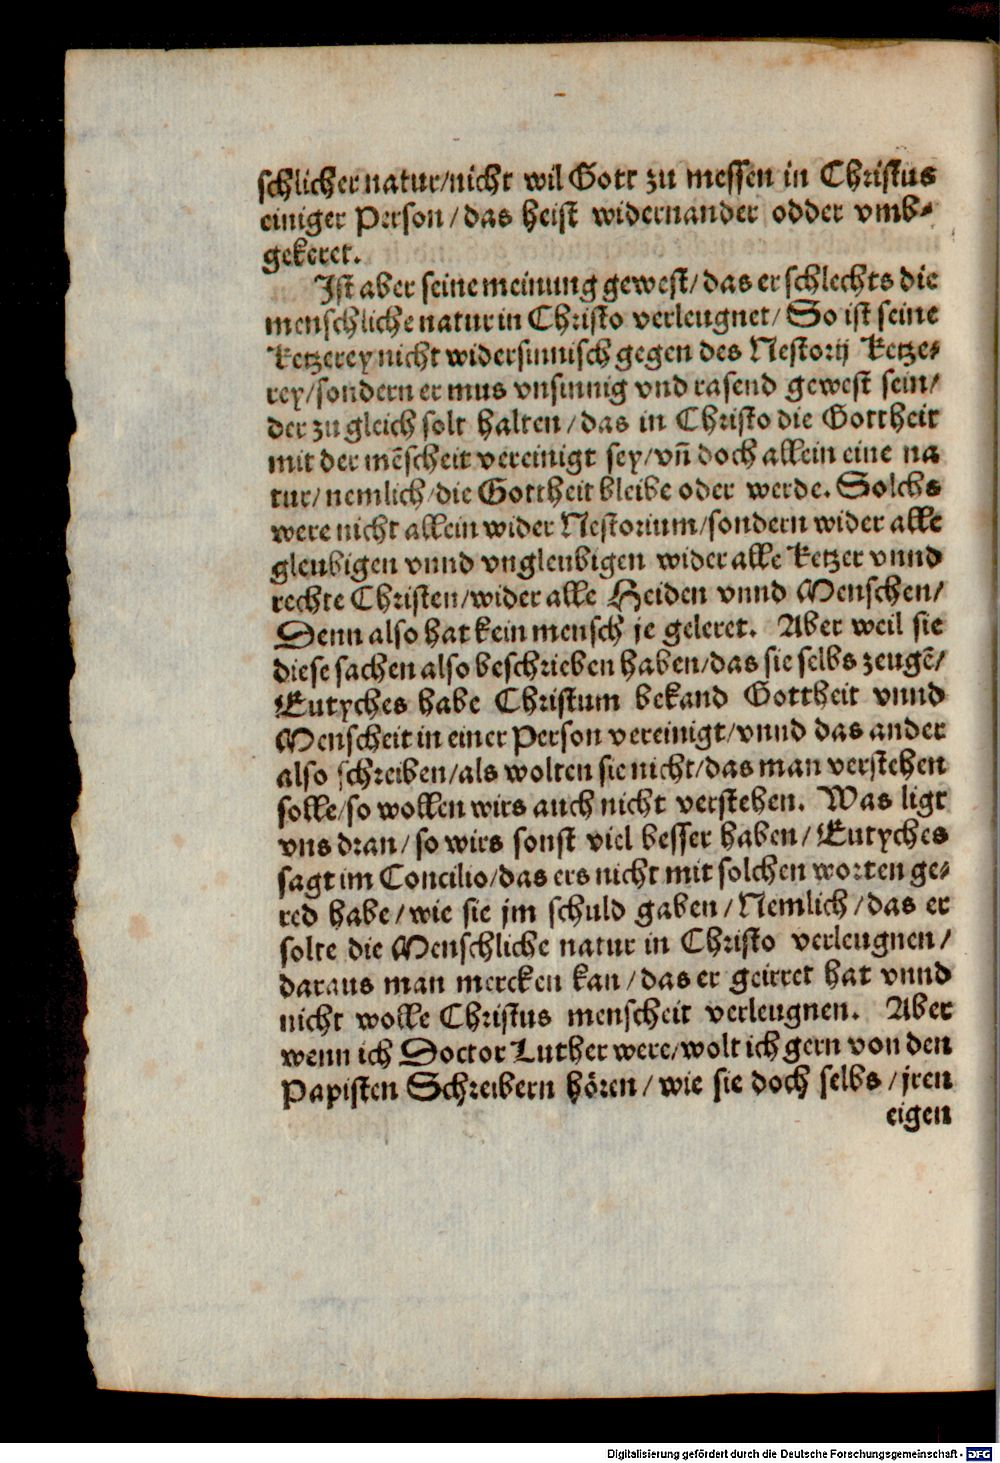 schlicher natur/nicht wil Gott zu messen in Christus
einiger Person/das heist widernander odder vmb-
gekeret.
Ist aber seine meinung gewest/das er schlechts die
menschliche natur in Christo verleugnet/So ist seine
Ketzerey nicht widersinnisch gegen des Nestorij Ketze-
rey/sondern er mus vnsinnig vnd rasend gewest sein/
der zu gleich solt halten/das in Christo die Gottheit
mit der mẽscheit vereinigt sey/vñ doch allein eine na
tur/nemlich/die Gottheit bleibe oder werde. Solchs
were nicht allein wider Nestorium/sondern wider alle
gleubigen vnnd vngleubigen wider alle Ketzer vnnd
rechte Christen/wider alle Heiden vnnd Menschen/
Denn also hat kein mensch je geleret. Aber weil sie
diese sachen also beschrieben haben/das sie selbs zeugẽ/
Eutyches habe Christum bekand Gottheit vnnd
Menscheit in einer Person vereinigt/vnnd das ander
also schreiben/als wolten sie nicht/das man verstehen
solle/so wollen wirs auch nicht verstehen. Was ligt
vns dran/so wirs sonst viel besser haben/Eutyches
sagt im Concilio/das ers nicht mit solchen worten ge-
red habe/wie sie jm schuld gaben/Nemlich/das er
solte die Menschliche natur in Christo verleugnen/
daraus man mercken kan/das er geirret hat vnnd
nicht wolle Christus menscheit verleugnen. Aber
wenn ich Doctor Luther were/wolt ich gern von den
Papisten Schreibern hören/wie sie doch selbs/jren
eigen
Digitalisierung gefördert durch die Deutsche Forschungsgemeinschaft - DFG